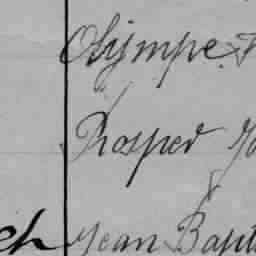 Olympe
Prosper
ch Jean Bapt